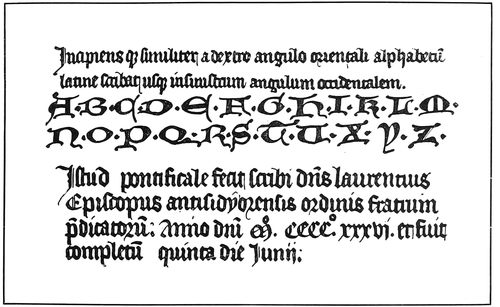 Incipiens qꝫ similiter a dextro angulo orientali alphabetū
latine scribat usqꝫ in sinistrum angulum occidentalem.
A·B·C·D·E·F·G·H·I·K·L·M·
N·O·P·Q·R·S·T·U·X·Y·Z·
Istud pontificale fecit scribi dn̄s laurentius
Episcopus antisidyorensis ordinis fratrum
p̄dicatorū: Anno dnī M. CCCC° xxxvi. et fuit
completū quinta die Junii;